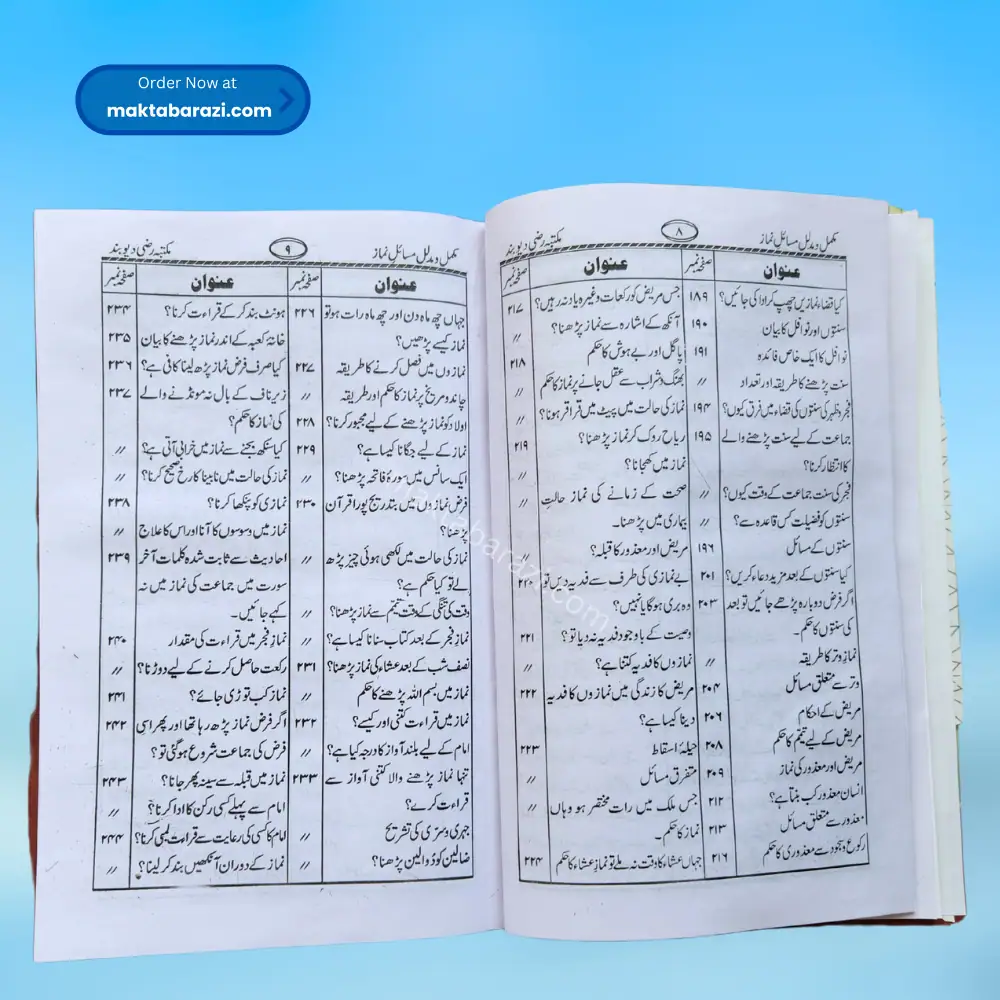 Order Now at
maktabarazi.com
مکمل ومدلل مسائل نماز
۸
مکتبہ رضی دیوبند
عنوان
صفحہ نمبر
کیا قضاء نمازیں چھپ کر ادا کی جائیں؟ ۱۸۹
سنتوں اور نوافل کا بیان ۱۹۰
نوافل کا ایک خاص فائدہ ۱۹۱
سنت پڑھنے کا طریقہ اور تعداد 〃
فجر و ظہر کی سنتوں کی قضاء میں فرق کیوں؟ ۱۹۴
جماعت کے لیے سنت پڑھنے والے ۱۹۵
کا انتظار کرنا؟
فجر کی سنت جماعت کے وقت کیوں؟ 〃
سنتوں کو فضیلت کس قاعدہ سے؟ 〃
سنتوں کے مسائل ۱۹۶
کیا سنتوں کے بعد مزید دعاء کریں؟ ۲۰۱
اگر فرض دوبارہ پڑھے جائیں تو بعد ۲۰۳
کی سنتوں کا حکم۔
نماز وتر کا طریقہ 〃
وتر سے متعلق مسائل ۲۰۴
مریض کے احکام ۲۰۶
مریض کے لیے تیمم کا حکم ۲۰۸
مریض اور معذور کی نماز ۲۰۹
انسان معذور کب بنتا ہے؟ ۲۱۲
معذور سے متعلق مسائل ۲۱۳
رکوع و سجود سے معذوری کا حکم ۲۱۶
عنوان
صفحہ نمبر
جس مریض کو رکعات وغیرہ یاد نہ رہیں؟ ۲۱۷
آنکھ کے اشارہ سے نماز پڑھنا؟ 〃
پاگل اور بے ہوش کا حکم ۲۱۸
بھنگ و شراب سے عقل جانے پر نماز کا حکم 〃
نماز کی حالت میں پیٹ میں قراقر ہونا؟ 〃
ریاح روک کر نماز پڑھنا؟ ۲۱۹
نماز میں کھجانا؟ 〃
صحت کے زمانے کی نماز حالتِ 〃
بیماری میں پڑھنا۔
مریض اور معذور کا قبلہ؟ 〃
بے نمازی کی طرف سے فدیہ دیں تو ۲۲۰
وہ بری ہوگا یا نہیں؟
وصیت کے باوجود فدیہ نہ دیا تو؟ ۲۲۱
نمازوں کا فدیہ کتنا ہے؟ 〃
مریض کا زندگی میں نمازوں کا فدیہ ۲۲۲
دینا کیسا ہے؟
حیلۂ اسقاط ۲۲۳
متفرق مسائل 〃
جس ملک میں رات مختصر ہو وہاں 〃
نماز کا حکم۔
جہاں عشاء کا وقت نہ ملے تو نماز عشاء کا حکم ۲۲۴
مکمل ومدلل مسائل نماز
۹
مکتبہ رضی دیوبند
عنوان
صفحہ نمبر
جہاں چھ ماہ دن اور چھ ماہ رات ہو تو ۲۲۶
نماز کیسے پڑھیں؟
نمازوں میں فصل کرنے کا طریقہ ۲۲۷
چاند و مریخ پر نماز کا حکم اور طریقہ 〃
اولاد کو نماز پڑھنے کے لیے مجبور کرنا؟ ۲۲۸
نماز کے لیے جگانا کیسا ہے؟ ۲۲۹
ایک سانس میں سورۂ فاتحہ پڑھنا؟ 〃
فرض نمازوں میں بتدریج پورا قرآن ۲۳۰
پڑھنا؟
نماز کی حالت میں لکھی ہوئی چیز پڑھ 〃
لے تو کیا حکم ہے؟
وقت کی تنگی کے وقت تیمم سے نماز پڑھنا؟ 〃
نماز فجر کے بعد کتاب سنانا کیسا ہے؟ 〃
نصف شب کے بعد عشاء کی نماز پڑھنا؟ ۲۳۱
نماز میں بسم اللہ پڑھنے کا حکم 〃
نماز میں قراءت کتنی اور کیسے؟ ۲۳۲
امام کے لیے بلند آواز کا درجہ کیا ہے؟ 〃
تنہا نماز پڑھنے والا کتنی آواز سے ۲۳۳
قراءت کرے؟
جہری و سری کی تشریح 〃
ضالین کو دوالین پڑھنا؟ 〃
عنوان
صفحہ نمبر
ہونٹ بند کر کے قراءت کرنا؟ ۲۳۴
خانۂ کعبہ کے اندر نماز پڑھنے کا بیان ۲۳۵
کیا صرف فرض نماز پڑھ لینا کافی ہے؟ ۲۳۶
زیر ناف کے بال نہ مونڈنے والے ۲۳۷
کی نماز کا حکم؟
کیا سنکھ بجنے سے نماز میں خرابی آتی ہے؟ 〃
نماز کی حالت میں نابینا کا رخ صحیح کرنا؟ 〃
نمازی کو پنکھا کرنا؟ ۲۳۸
نماز میں وسوسوں کا آنا اور اس کا علاج 〃
احادیث سے ثابت شدہ کلمات آخر ۲۳۹
سورت میں جماعت کی نماز میں نہ
کہے جائیں۔
نماز فجر میں قراءت کی مقدار ۲۴۰
رکعت حاصل کرنے کے لیے دوڑنا؟ 〃
نماز کب توڑی جائے؟ ۲۴۱
اگر فرض نماز پڑھ رہا تھا اور پھر اسی ۲۴۲
فرض کی جماعت شروع ہو گئی تو؟
نماز میں قبلہ سے سینہ پھر جانا؟ ۲۴۳
امام سے پہلے کسی رکن کا ادا کرنا؟ 〃
امام کا کسی کی رعایت سے قراءت لمبی کرنا؟ ۲۴۴
نماز کے دوران آنکھیں بند کر لینا؟ 〃
maktabarazi.com